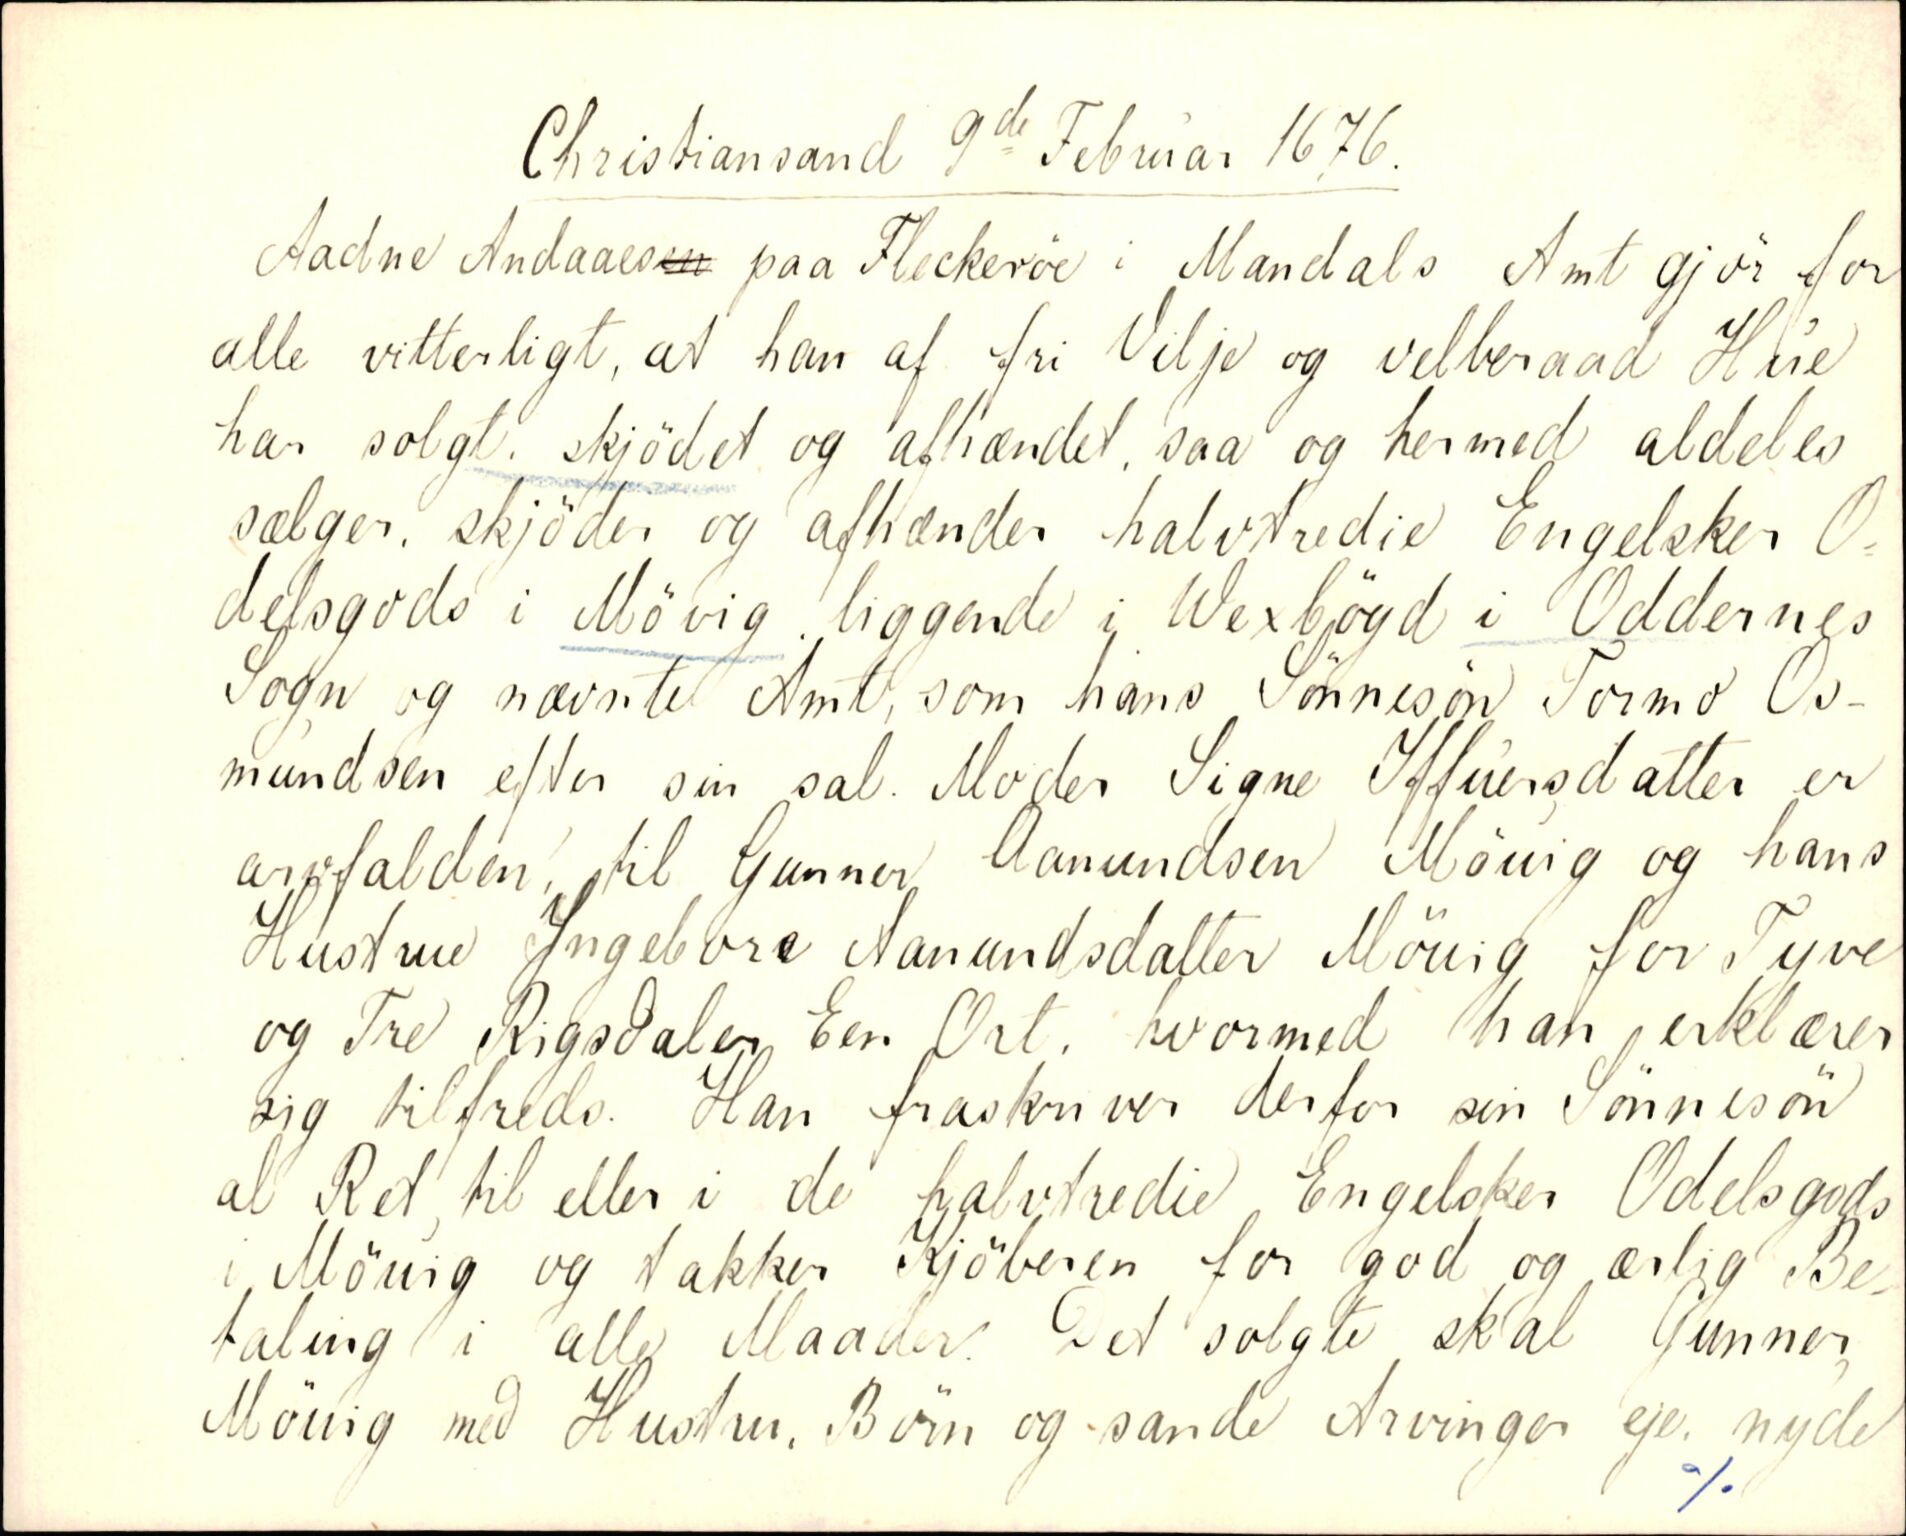 Christiansand 9de Februar 1676.
Aadne Andaaesen paa Fleckeröe i Mandals Amt gjör for
alle vitterligt, at han af fri Vilje og velberaad Hue
har solgt, skjödet og afhændet, saa og hermed aldeles
sælger, skjöder og afhænder halvtredie Engelsker O-
delsgods i Mövig, liggende i Wexböygd i Oddernes
Sogn og nævnte Amt, som hans Sönnesön Tormo Os-
mundsen efter sin sal. Moder Signe Iffuersdatter er
arvfalden, til Gunner Aanundsen Möuig og hans
Hustrue Ingebore Aanundsdatter Möuig for Tyve
og Tre Rigsdaler Een Ort, hvormed han erklærer
sig tilfreds. Han fraskriver derfor sin Sönnesön
al Ret til eller i de halvtredie Engelsker Odelsgods
i Möuig og takker Kjöberen for god og ærlig Be-
taling i alle Maader. Det solgte skal Gunner
Möuig med Hustru, Börn og sande Arvinger eje, nyde
%